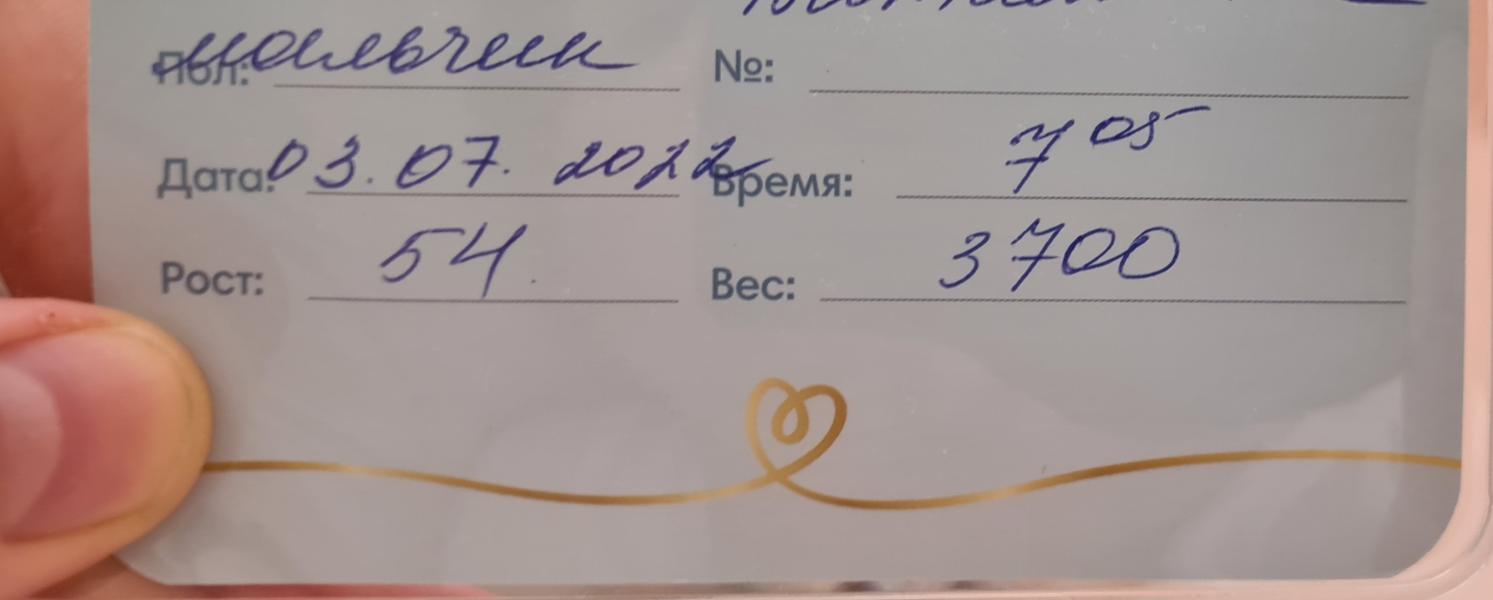 Пол: мальчик №:
Дата: 03.07.2022 Время: 7 05
Рост: 54. Вес: 3700